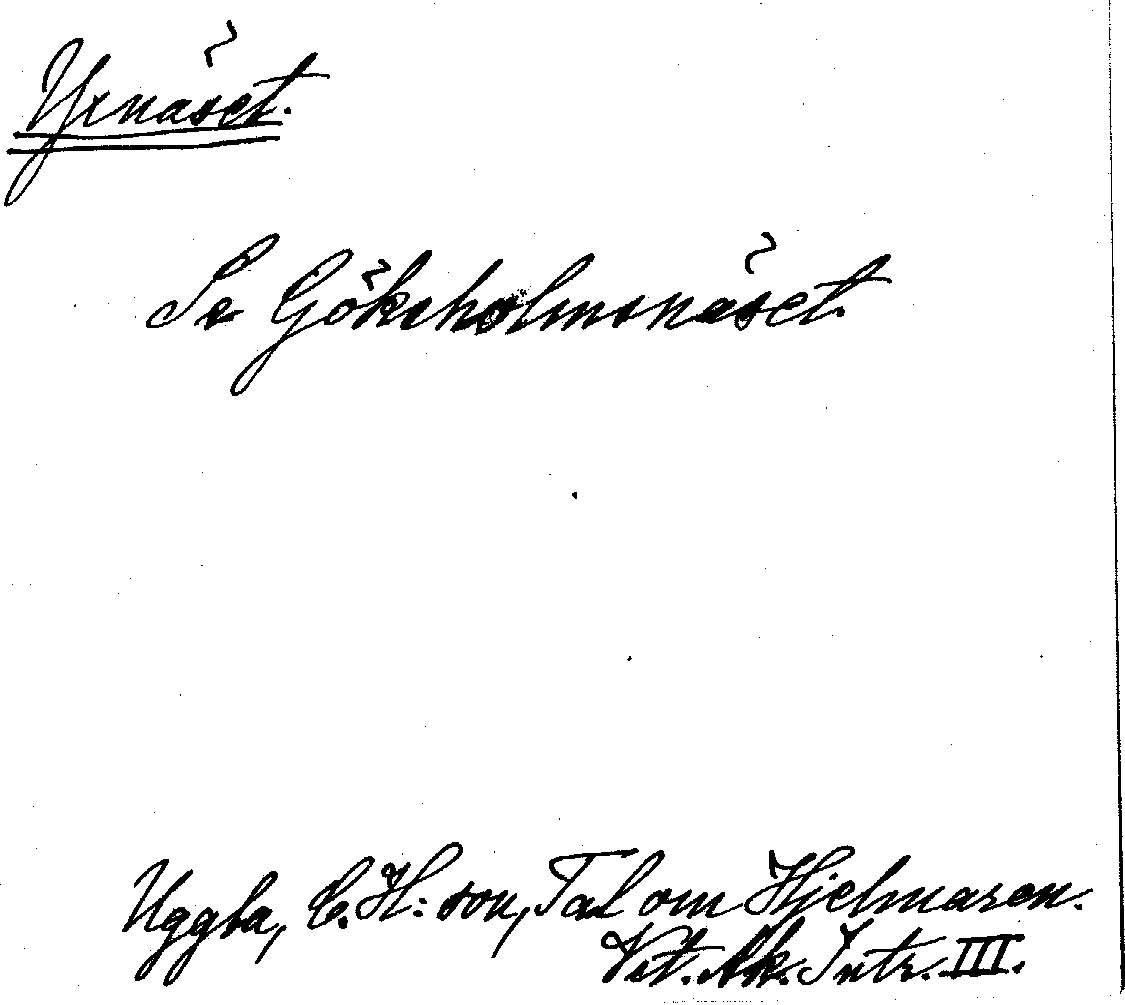 Yrnäset.
Se Göksholmsnäset.
Uggla, C. H:son, Tal om Hjelmaren.
Vet. Ak. Intr. III.